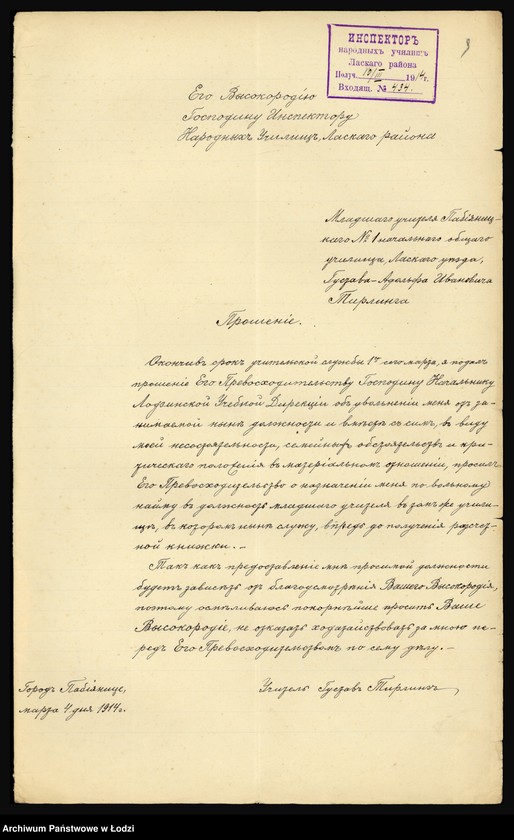 ИНСПЕКТОРЪ
народныхъ училищъ
Ласкаго района
Получ. 10/III 1914г.
Входящ. № 434
Его Высокородію
Господину Инспектору
Народныхъ Училищъ, Ласкаго района
Младшаго учителя Пабіяниц-
каго № 1 начальнаго общаго
училища, Ласкаго уѣзда,
Густава-Адольфа Ивановича
Тирлинга
Прошеніе.
Окончивъ срокъ учительской службы 1го сего марта, я подалъ
прошеніе Его Превосходительству Господину Начальнику
Лодзинской Учебной Дирекціи объ увольненіи меня отъ за-
нимаемой нынѣ должности и вмѣстѣ съ симъ, въ виду
моей несостоятельности, семейныхъ обстоятельствъ и кри-
тическаго положенія въ матеріальномъ отношеніи, просилъ
Его Превосходительство о назначеніи меня по вольному
найму въ должность младшаго учителя въ томъ же учили-
щѣ, въ которомъ нынѣ служу, впредь до полученія расчет-
ной книжки. —
Такъ какъ предоставленіе мнѣ просимой должности
будетъ зависѣть отъ благоусмотрѣнія Вашего Высокородія,
поэтому осмѣливаюсь покорнѣйше просить Ваше
Высокородіе, не отказать ходатайствовать за мною пе-
редъ Его Превосходительствомъ по сему дѣлу. —
Городъ Пабіянице,
марта 4 дня 1914г.
Учитель Густавъ Тирлингъ
Archiwum Państwowe w Łodzi